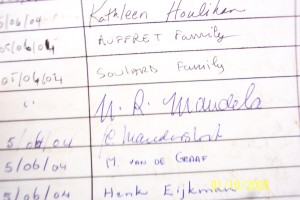 5/06/04 Kathleen Houlihan
05/06/04 AUFFRET Family
05/06/04 SOULARD Family
" N. R. Mandela
5/06/04
5/06/04 M. VAN DE GRAAF
5/06/04 Henk Eijkman